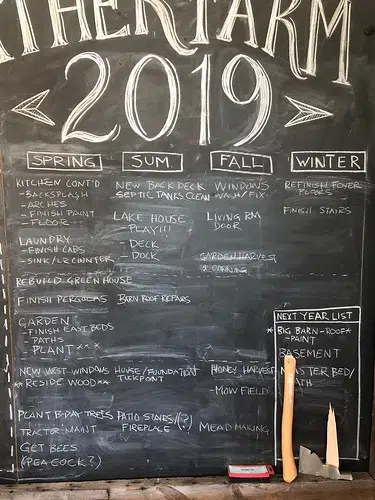 THERFARM
2019
SPRING
KITCHEN CONT'D
- BACKSPLASH
- ARCHES
- FINISH PAINT
- FLOOR
LAUNDRY
- FINISH CABS
- SINK/COUNTER
REBUILD GREEN HOUSE
FINISH PERGOLAS
GARDEN
- FINISH EAST BEDS
- PATHS
- PLANT
NEW WEST WINDOWS
** RESIDE WOOD **
PLANT B-DAY TREES
TRACTOR MAINT
GET BEES
(PEACOCK?)
SUM
NEW BACK DECK
SEPTIC TANKS CLEAN
LAKE HOUSE
- PLAY!!!
- DECK
- DOCK
BARN ROOF REPAIRS
HOUSE/FOUNDATION
TUCKPOINT
PATIO STAIRS/(?)
FIREPLACE
FALL
WINDOWS
WASH/FIX
LIVING RM
DOOR
GARDEN HARVEST
& CANNING
HONEY HARVEST
- MOW FIELD
MEAD MAKING
WINTER
REFINISH FOYER
FLOORS
FINISH STAIRS
NEXT YEAR LIST
BIG BARN - ROOF*
- PAINT
BASEMENT
MASTER BED/
BATH